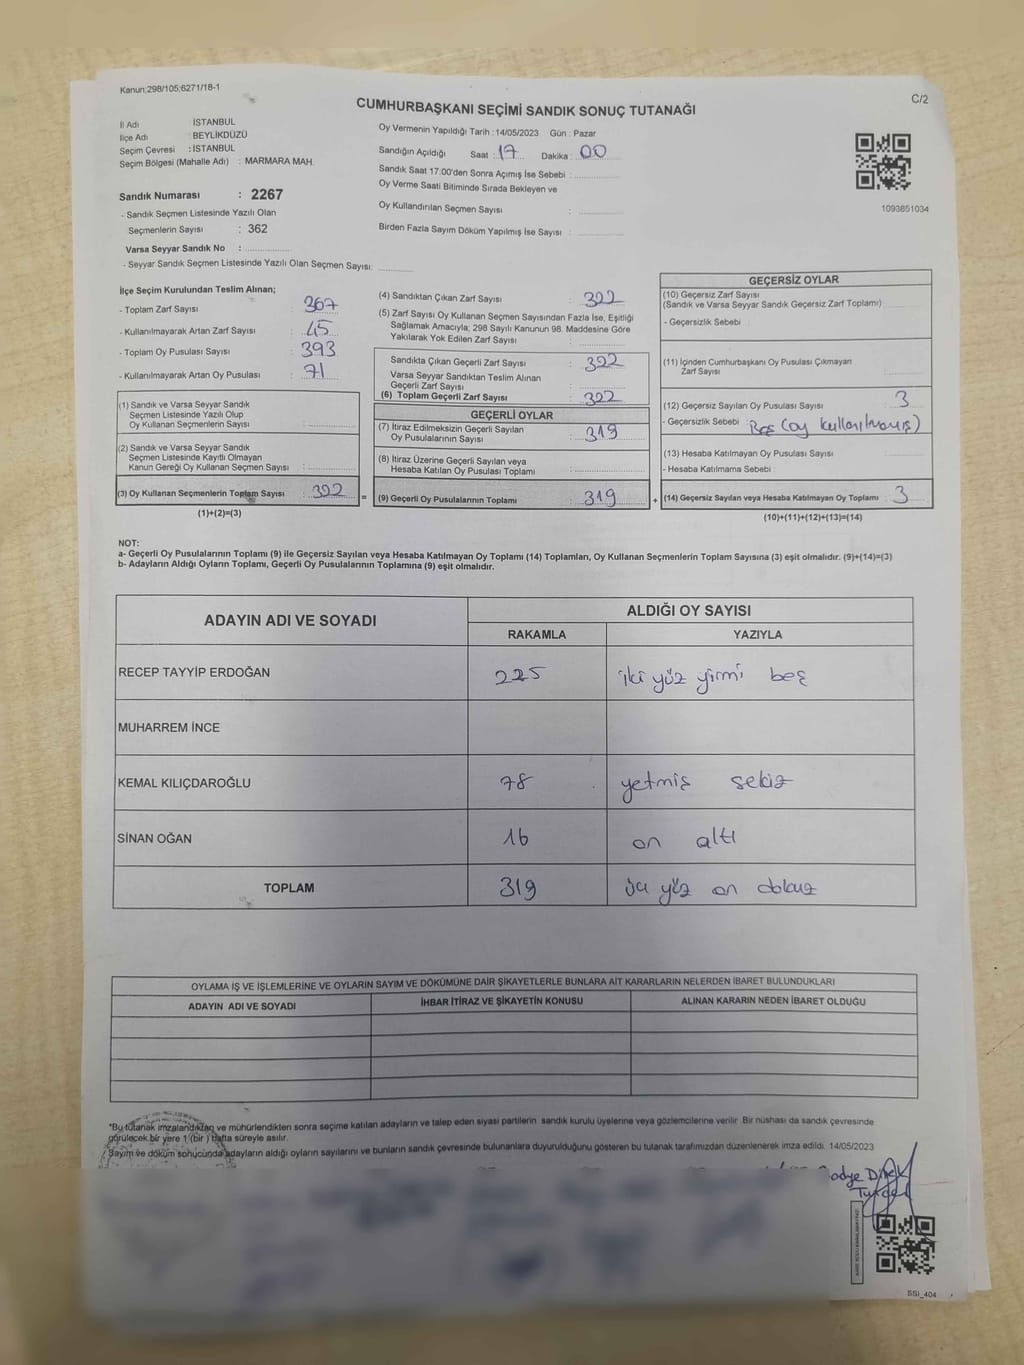 Kanun:298/105;6271/18-1
C/2
CUMHURBAŞKANI SEÇİMİ SANDIK SONUÇ TUTANAĞI
İl Adı İSTANBUL
İlçe Adı : BEYLİKDÜZÜ
Seçim Çevresi : İSTANBUL
Seçim Bölgesi (Mahalle Adı) : MARMARA MAH.
Sandık Numarası : 2267
- Sandık Seçmen Listesinde Yazılı Olan
Seçmenlerin Sayısı : 362
Varsa Seyyar Sandık No :
- Seyyar Sandık Seçmen Listesinde Yazılı Olan Seçmen Sayısı:
Oy Vermenin Yapıldığı Tarih : 14/05/2023 Gün : Pazar
Sandığın Açıldığı Saat : 17 Dakika : 00
Sandık Saat 17.00'den Sonra Açımış İse Sebebi :
Oy Verme Saati Bitiminde Sırada Bekleyen ve
Oy Kullandırılan Seçmen Sayısı :
Birden Fazla Sayım Döküm Yapılmış İse Sayısı :
1093851034
İlçe Seçim Kurulundan Teslim Alınan;
- Toplam Zarf Sayısı : 367
- Kullanılmayarak Artan Zarf Sayısı : 45
- Toplam Oy Pusulası Sayısı : 393
- Kullanılmayarak Artan Oy Pusulası : 71
(1) Sandık ve Varsa Seyyar Sandık
Seçmen Listesinde Yazılı Olup
Oy Kullanan Seçmenlerin Sayısı :
(2) Sandık ve Varsa Seyyar Sandık
Seçmen Listesinde Kayıtlı Olmayan
Kanun Gereği Oy Kullanan Seçmen Sayısı :
(3) Oy Kullanan Seçmenlerin Toplam Sayısı : 322 =
(1)+(2)=(3)
(4) Sandıktan Çıkan Zarf Sayısı : 322
(5) Zarf Sayısı Oy Kullanan Seçmen Sayısından Fazla İse, Eşitliği
Sağlamak Amacıyla; 298 Sayılı Kanunun 98. Maddesine Göre
Yakılarak Yok Edilen Zarf Sayısı :
Sandıkta Çıkan Geçerli Zarf Sayısı : 322
Varsa Seyyar Sandıktan Teslim Alınan
Geçerli Zarf Sayısı :
(6) Toplam Geçerli Zarf Sayısı : 322
GEÇERLİ OYLAR
(7) İtiraz Edilmeksizin Geçerli Sayılan
Oy Pusulalarının Sayısı : 319
(8) İtiraz Üzerine Geçerli Sayılan veya
Hesaba Katılan Oy Pusulası Toplamı :
(9) Geçerli Oy Pusulalarının Toplamı : 319 +
GEÇERSİZ OYLAR
(10) Geçersiz Zarf Sayısı
(Sandık ve Varsa Seyyar Sandık Geçersiz Zarf Toplamı) :
- Geçersizlik Sebebi :
(11) İçinden Cumhurbaşkanı Oy Pusulası Çıkmayan
Zarf Sayısı :
(12) Geçersiz Sayılan Oy Pusulası Sayısı : 3
- Geçersizlik Sebebi : Boş (oy kullanılmamış)
(13) Hesaba Katılmayan Oy Pusulası Sayısı :
- Hesaba Katılmama Sebebi :
(14) Geçersiz Sayılan veya Hesaba Katılmayan Oy Toplamı : 3
(10)+(11)+(12)+(13)=(14)
NOT:
a- Geçerli Oy Pusulalarının Toplamı (9) ile Geçersiz Sayılan veya Hesaba Katılmayan Oy Toplamı (14) Toplamları, Oy Kullanan Seçmenlerin Toplam Sayısına (3) eşit olmalıdır. (9)+(14)=(3)
b- Adayların Aldığı Oyların Toplamı, Geçerli Oy Pusulalarının Toplamına (9) eşit olmalıdır.
ADAYIN ADI VE SOYADI
ALDIĞI OY SAYISI
RAKAMLA YAZIYLA
RECEP TAYYİP ERDOĞAN 225 iki yüz yirmi beş
MUHARREM İNCE
KEMAL KILIÇDAROĞLU 78 yetmiş sekiz
SİNAN OĞAN 16 on altı
TOPLAM 319 üç yüz on dokuz
OYLAMA İŞ VE İŞLEMLERİNE VE OYLARIN SAYIM VE DÖKÜMÜNE DAİR ŞİKAYETLERLE BUNLARA AİT KARARLARIN NELERDEN İBARET BULUNDUKLARI
ADAYIN ADI VE SOYADI İHBAR İTİRAZ VE ŞİKAYETİN KONUSU ALINAN KARARIN NEDEN İBARET OLDUĞU
*Bu tutanak imzalandıktan ve mühürlendikten sonra seçime katılan adayların ve talep eden siyasi partilerin sandık kurulu üyelerine veya gözlemcilerine verilir. Bir nüshası da sandık çevresinde
görülecek bir yere 1 (bir) hafta süreyle asılır.
Sayım ve döküm sonucunda adayların aldığı oyların sayılarını ve bunların sandık çevresinde bulunanlara duyurulduğunu gösteren bu tutanak tarafımızdan düzenlenerek imza edildi. 14/05/2023
SSI_404